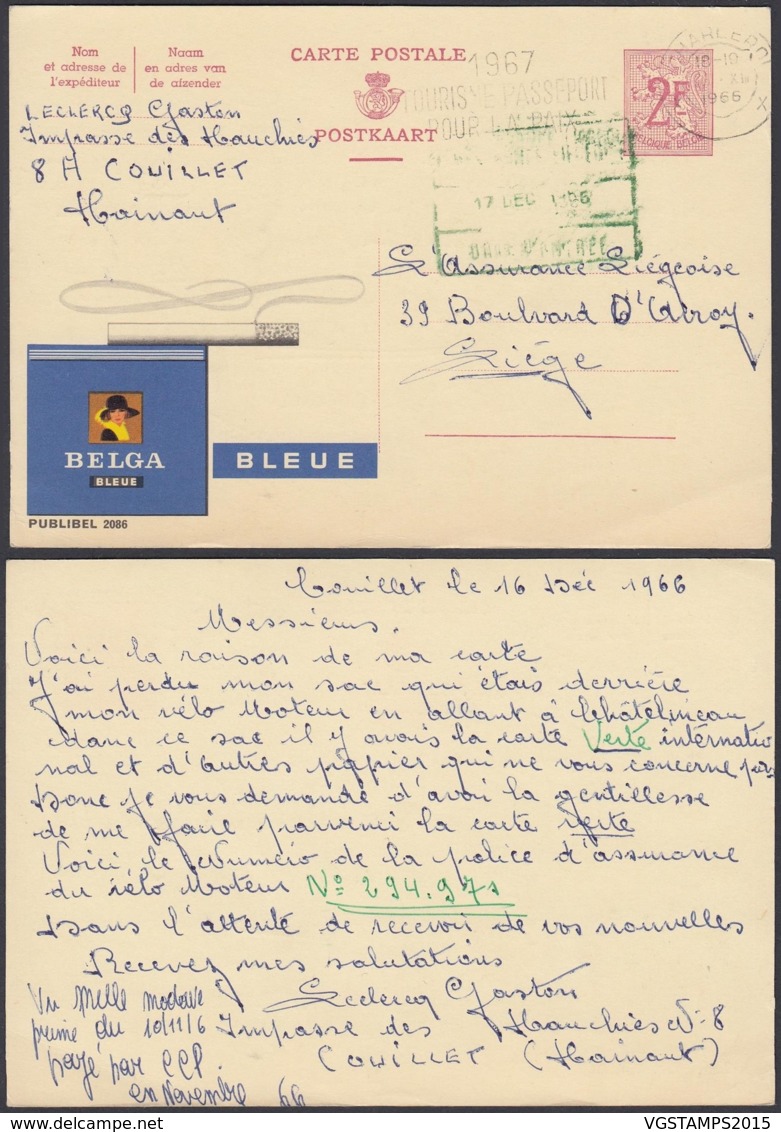 Nom
et adresse de
l'expéditeur
Naam
en adres van
de afzender
CARTE POSTALE
POSTKAART
1967
TOURISME PASSEPORT
POUR LA PAIX
CHARLEROI
18-19
XII
1966
X
2F
BELGIQUE BELGIE
LECLERCQ Gaston
Impasse des Hauchies
8 A COUILLET
Hainaut
17 DEC 1966
DATE D'ENTRÉE
L'Assurance Liégeoise
39 Boulvard D'Avroy.
Liège
BELGA
BLEUE
BLEUE
PUBLIBEL 2086
Couillet le 16 Déc 1966
Messieurs.
Voici la raison de ma carte
J'ai perdu mon sac qui étais derrière
mon vélo Moteur en allant à Châtelineau
dans ce sac il y avais la carte Verte internatio
nal et d'autres papier qui ne vous concerne pas
Donc je vous demande d'avoir la gentillesse
de me faire parvenir la carte verte
Voici le Numéro de la police d'assurance
du vélo Moteur No 294.971
Dans l'attente de recevoir de vos nouvelles
Recevez mes salutations
Leclercq Gaston
Impasse des Hauchies No 8
COUILLET (Hainaut)
Vu Melle
prime du 10/11/6
payé par CCP.
en Novembre 66
VGSTAMPS2015